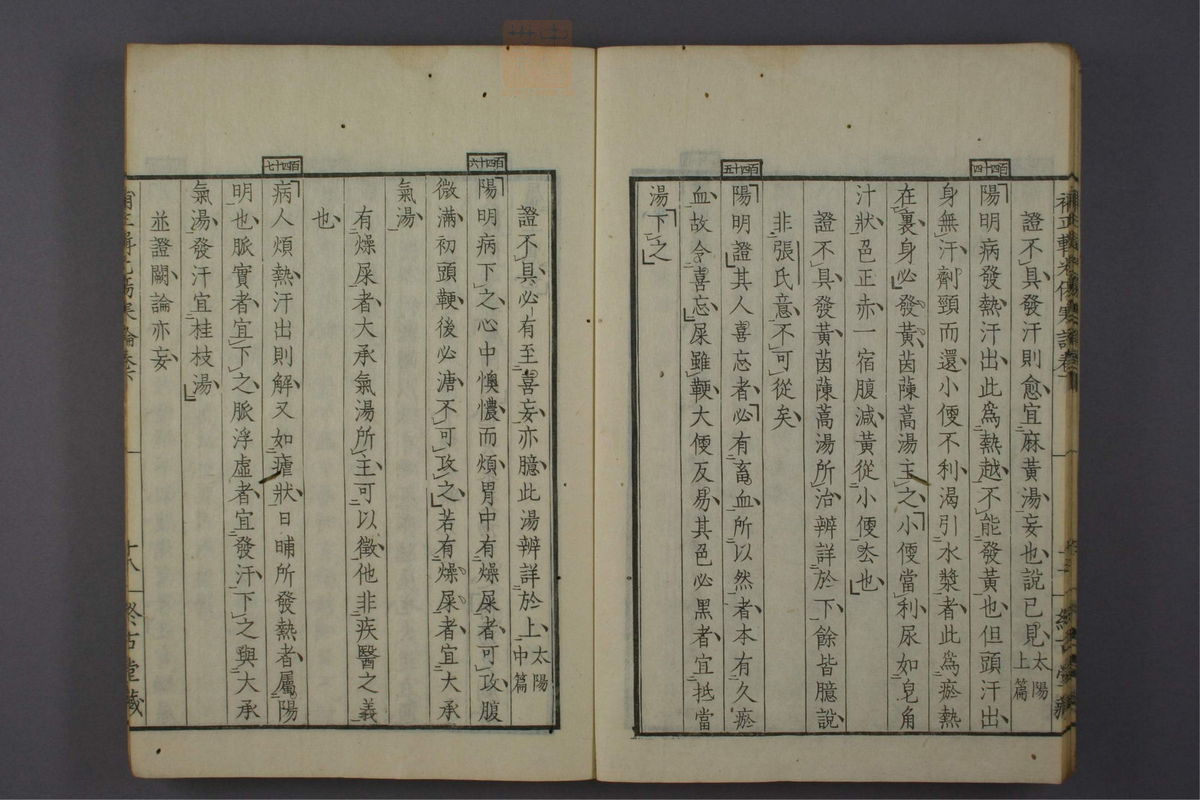 百四十四
百四十五
證不具發汗則愈宜麻黃湯妄也說已見太陽上篇
陽明病發熱汗出此爲熱越不能發黃也但頭汗出
身無汗劑頸而還小便不利渴引水漿者此爲瘀熱
在裏身必發黃茵蔯蒿湯主之小便當利尿如皂角
汁狀色正赤一宿腹減黃從小便去也
證不具發黃茵蔯蒿湯所治辨詳於下餘皆臆說
非張氏意不可從矣
陽明證其人喜忘者必有畜血所以然者本有久瘀
血故令喜忘屎雖鞕大便反易其色必黑者宜抵當
湯下之
百四十六
百四十七
證不具必有至喜妄亦臆此湯辨詳於上太陽中篇
陽明病下之心中懊憹而煩胃中有燥屎者可攻腹
微滿初頭鞕後必溏不可攻之若有燥屎者宜大承
氣湯
有燥屎者大承氣湯所主可以徵他非疾醫之義
也
病人煩熱汗出則解又如瘧狀日晡所發熱者屬陽
明也脈實者宜下之脈浮虛者宜發汗下之與大承
氣湯發汗宜桂枝湯
並證闕論亦妄
十八